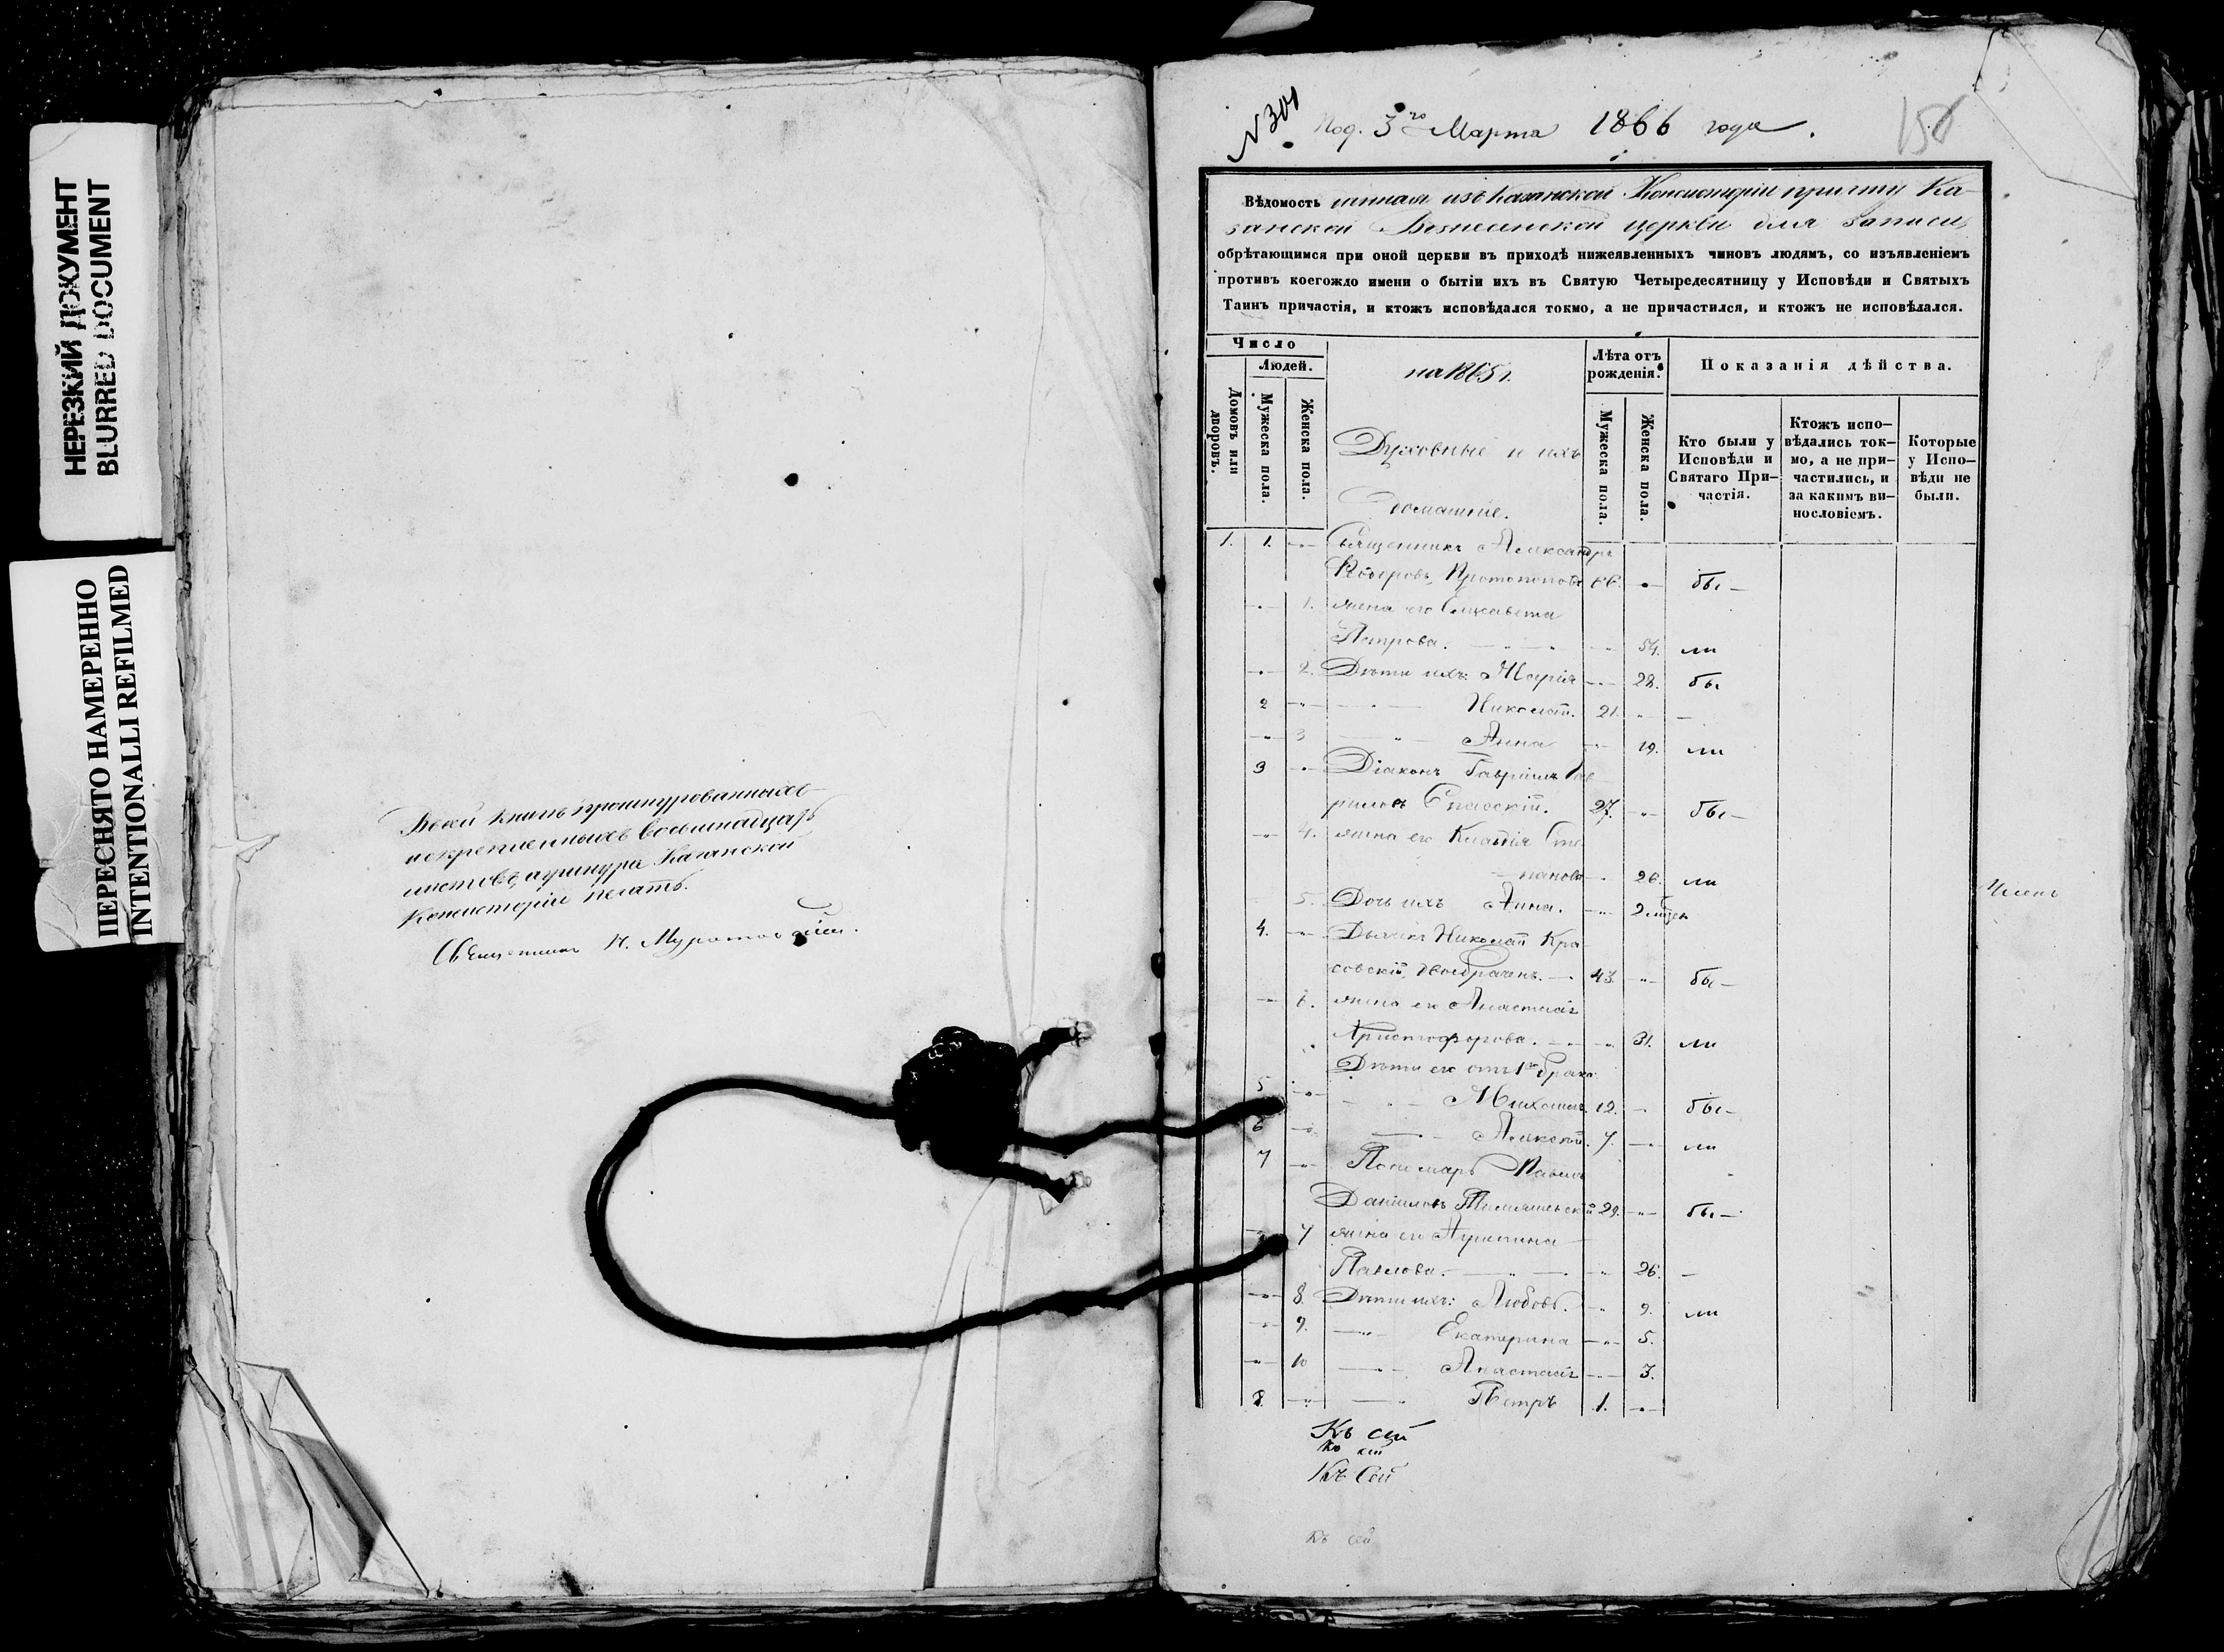 НЕРЕЗКИЙ ДОКУМЕНТ
BLURRED DOCUMENT
ПЕРЕСНЯТО НАМЕРЕННО
INTENTIONALLI REFILMED
Въ сей книгѣ прошнурованныхъ
и скрепленныхъ восемнадцать
листовъ, а у шнура Казанской
Консисторіи печать.
Священникъ Н.
№ 301
Под. 3го Марта 1866 года.
158
Вѣдомость данная изъ Казанской Консисторіи причту Ка-
занской Вознесенской церкви для записи
обрѣтающимся при оной церкви въ приходѣ нижеявленныхъ чиновъ людямъ, со изъявленіемъ
противъ коегождо имени о бытіи ихъ въ Святую Четыредесятницу у Исповѣди и Святыхъ
Таинъ причастія, и ктожъ исповѣдался токмо, а не причастился, и ктожъ не исповѣдался.
Число
Людей.
Домовъ или дворовъ.
Мужеска пола.
Женска пола.
на 1865 г.
Духовные и ихъ
домашніе.
Лѣта отъ рожденія.
Мужеска пола.
Женска пола.
Показанія дѣйства.
Кто были у Исповѣди и Святаго При-частія.
Ктожъ испо-вѣдались ток-мо, а не при-частились, и за какимъ ви-нословіемъ.
Которые у Испо-вѣди не были.
1. 1. Священникъ Александръ
Ѳедоровъ Протопоповъ 66. бы-
1. жена его Елисавета
Петрова. 54. ли
2. Дѣти ихъ: Марія 28. бы
2 Николай. 21. -
3 Анна 19. ли
3 Діаконъ Гавріилъ Гав-
риловъ Спасскій. 27. бы-
4. жена его Клавдія Сте-
панова 26. ли
5. Дочь ихъ Анна. 2
4. Дьячекъ Николай Кра-
совскій, двоебраченъ. 43. бы-
6. жена его Анастасія
Христофорова. 31. ли
Дѣти его отъ 1го брака
5 Михаилъ. 12. бы-
6 Алексѣй. 7. ли
7 Пономарь Павелъ
Даніиловъ 29. бы-
7 жена его Агрипина
Павлова. 26. -
8. Дѣти ихъ: Любовь. 9. ли
9. Екатерина 5.
10 Анастасія 3.
8. Петръ 1.
Членъ
Къ сей
Къ сей
Къ Сей
Къ сей